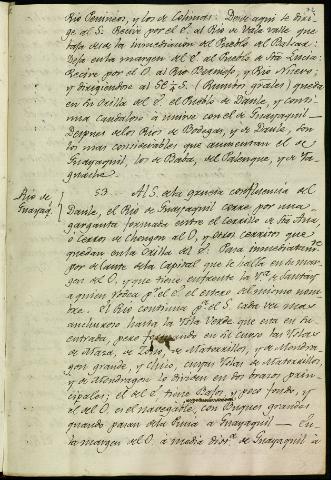 Rio Pemineos, y los de Colimas. Desde aqui se diri-
ge al S. Recive por el E. al Rio de Vala valle que
baja desde la inmediacion del Pueblo del Palenq.
Deja en la margen del E. al Pueblo de Sta Lucia:
Recive por el O. al Rio Bermejo, y Rio Nuevo;
y dirigiendose al SE 1/4 S. (Rumbos grales) queda
en su Orilla del E. el Pueblo de Daule, y conti-
nua caudaloso à unirse con el de Guayaquil —
Despues de los Rios de Bodegas, y de Daule, son
los mas considerables que aumentan el de
Guayaquil, los de Baba, del Palenque, y de Ya-
guachi.
Rio de
Guayaq.
53. Al S. de la gruesa confluencia del
Daule, el Rio de Guayaquil corre por una
garganta formada entre el Cerrillo de Sta Ana,
ò Cerros de Chongon al O, y otros cerritos que
quedan en la Orilla del E. Pasa inmediatam.te
por delante de la Capital que se halla en la mar-
gen del O, y que tiene enfrente la Ysla de Santay
a quien rodea p.r el E. el estero del mismo nom-
bre. El Rio continua p.a el S. cada vez mas
anchuroso hasta la Ysla Verde que esta en su
entrada, pero formando en su curso las Yslas
de Masa, de Lobos, de Matorrillos, y de Mondra-
gon grande, y chico, cuyas Yslas de Matorrillos,
y de Mondragon lo dividen en dos brazos prin-
cipales; el del E. tiene Bajos, y poco fondo, y
el del O. es el navegable, con Buques grandes
quando pasan de la Puna a Guayaquil — En
la margen del O. a media dis.a de Guayaquil à